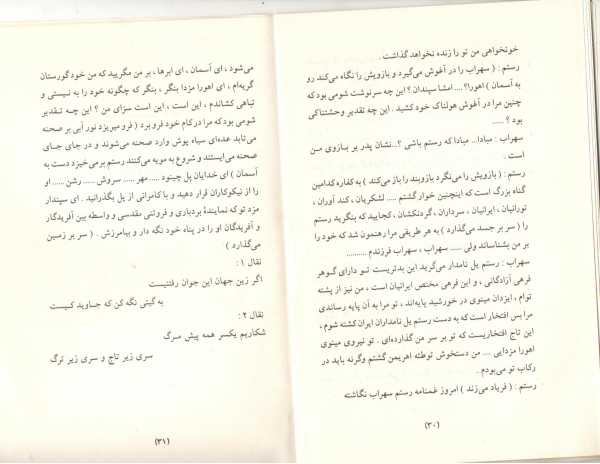 خونخواهی من تو را زنده نخواهد گذاشت .
رستم : ( سهراب را در آغوش می‌گیرد و بازویش را نگاه می‌کند رو
به آسمان ) اهورا؟ .... امشا سپندان ؟ این چه سرنوشت شومی بود که
چنین مرا در آغوش هولناک خود کشید . این چه تقدیر وحشتناکی
بود ؟ .....
سهراب : مبادا... مبادا که رستم باشی ؟..نشان پدر بر بازوی من
است .
رستم : ( بازویش را می‌نگرد بازوبند را باز می‌کند ) به کفاره کدامین
گناه بزرگ است که اینچنین خوار گشتم .... لشکریان ، کند آوران ،
تورانیان ، ایرانیان ، سرداران ، گردنکشان ، کجایید که بنگرید رستم
را ( سر بر جسد می‌گذارد ) به هر طریقی مرا رهنمون شد که خود را
بر من بشناساند ولی ..... سهراب ، سهراب فرزندم ..........
سهراب : رستم یل نامدار می‌گرید این بدتریست تو دارای گوهر
فرهی آزادگانی ، و این فرهی مختص ایرانیان است ، من نیز از پشته
توام ، ایزدان مینوی در خورشید پایه‌اند ، تو مرا به آن پایه رساندی
مرا بس افتخار است که به دست رستم یل نامداران ایران کشته شوم ،
این تاج افتخاریست که تو بر سر من گذارده‌ای . تو نیروی مینوی
اهورا مزدایی .... من دستخوش توطئه اهریمن گشتم وگرنه باید در
رکاب تو می‌بودم .
رستم : ( فریاد می‌زند ) امروز غمنامه رستم سهراب نگاشته
(۳۰)
می‌شود ، ای آسمان ، ای ابرها ، بر من مگریید که من خود گورستان
گریه‌ام ، ای اهورا مزدا بنگر ، بنگر که چگونه خود را به نیستی و
تباهی کشاندم ، این است ، این است سزای من ؟ این چه تقدیر
شومی بود که مرا در کام خود فرو برد ( فرو میریزد نور آبی بر صحنه
می‌تابد عده‌ای سیاه پوش وارد صحنه می‌شوند و در جای جای
صحنه می‌ایستند و شروع به مویه می‌کنند رستم برمی‌خیزد دست به
آسمان ) ای خدایان پل چینود .... مهر ..... سروش ..... رشن ..... او
را از نیکوکاران قرار دهید و با کامرانی از پل بگذرانید . ای سپندار
مزد تو که نمایندهٔ بردباری و فروتنی مقدسی و واسطه بین آفریدگار
و آفریدگان او را در پناه خود نگه دار و بیامرزش . ( سر بر زمین
می‌گذارد )
نقال ۱ :
اگر زین جهان این جوان رفتنیست
به گیتی نگه کن که جاوید کیست
نقال ۲ :
شکاریم یکسر همه پیش مرگ
سری زیر تاج و سری زیر ترگ
(۳۱)